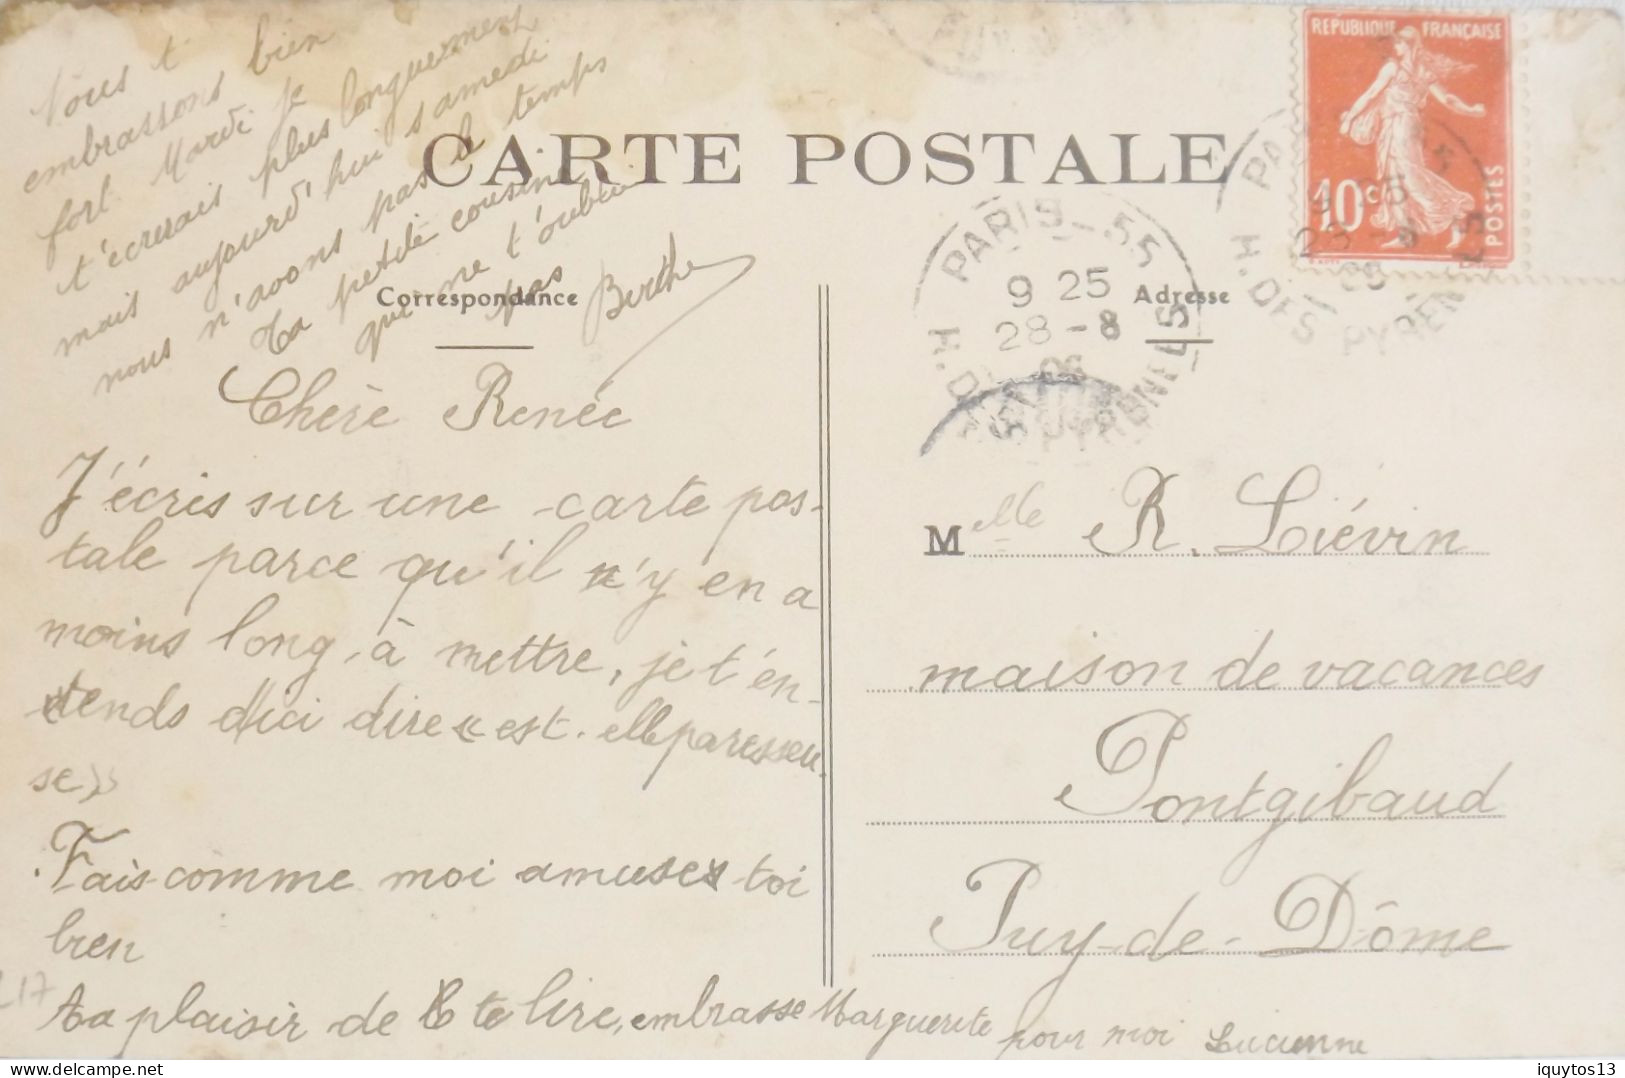 Nous t
embrassons bien
fort Mardi je
t'écrirais plus longuement
mais aujourd'hui samedi
nous n'avons pas le temps
Ta petite cousine
qui ne t'oublie
pas Berthe
CARTE POSTALE
Correspondance
Adresse
REPUBLIQUE FRANÇAISE
10c
POSTES
PARIS-55
9 25
28-8
R. DES PYRENEES
Chère Renée
J'écris sur une carte pos-
tale parce qu'il n'y en a
moins long à mettre, je t'en-
tends d'ici dire « est-elle paresseu-
se »
Fais comme moi amuses toi
bien
Ta plaisir de te lire, embrasse Marguerite pour moi Lucienne
Melle R. Liévin
maison de vacances
Pontgibaud
Puy-de-Dôme
L17
Delcampe.net
iquytos13